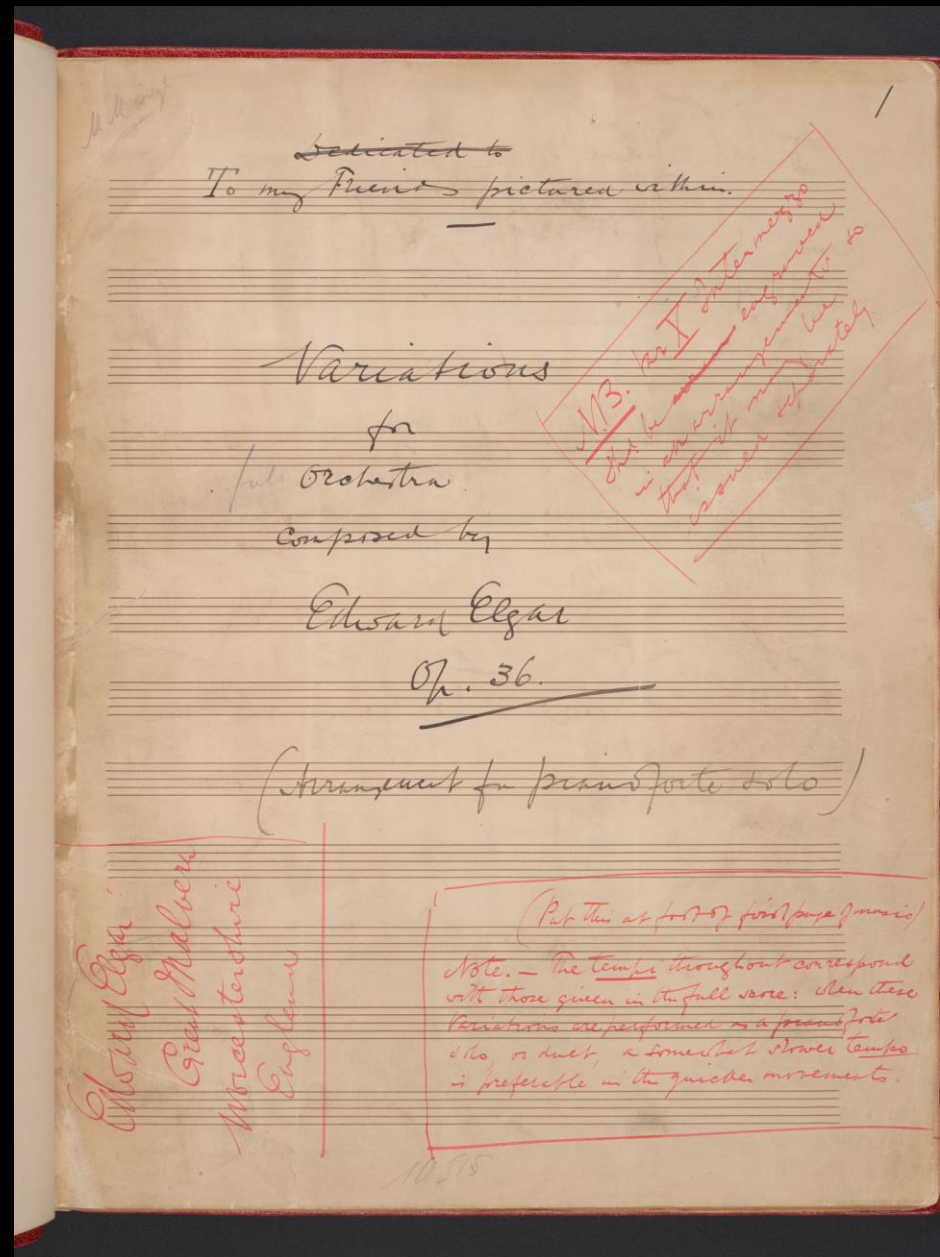 1
Dedicated to
To my Friends pictured within.
Variations
for
full Orchestra
composed by
Edward Elgar
Op. 36.
(Arrangement for pianoforte solo)
N.B. Var X Intermezzo
engraved
in an arrangement so
that it may be
issued separately
Edward Elgar
Great Malvern
Worcestershire
England
(Put this at foot of first page of music)
Note. — The tempi throughout correspond
with those given in the full score: when these
Variations are performed as a pianoforte
solo, or duet, a somewhat slower tempo
is preferable in the quicker movements.